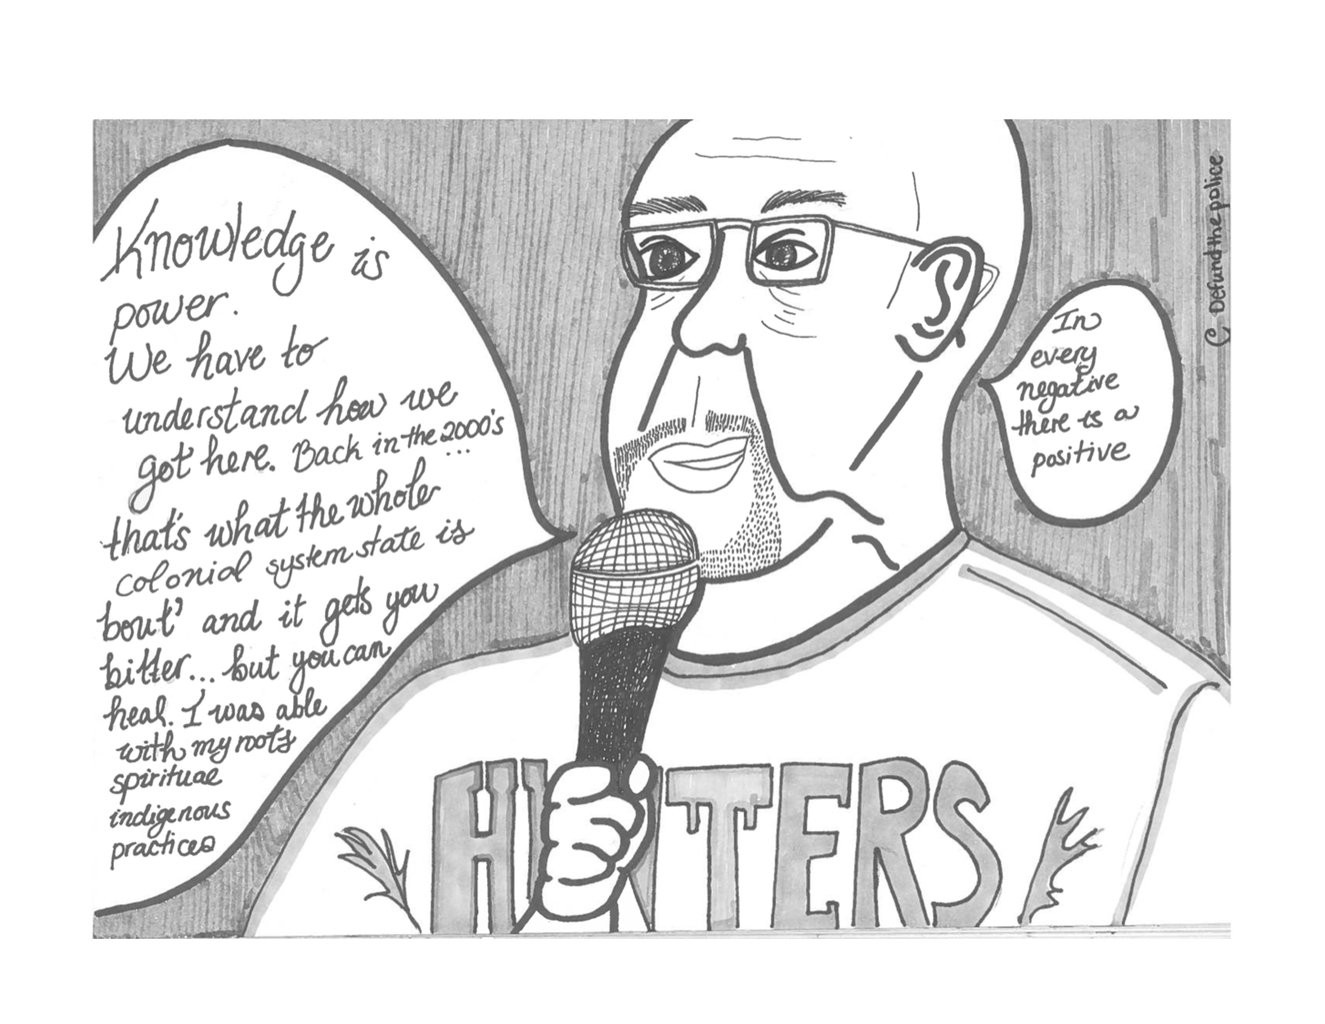 Knowledge is
power.
We have to
understand how we
got here. Back in the 2000's
...
that's what the whole
colonial system state is
'bout' and it gets you
bitter... but you can
heal. I was able
with my roots
spiritual
indigenous
practices
In
every
negative
there is a
positive
C Defund the police
HUNTERS